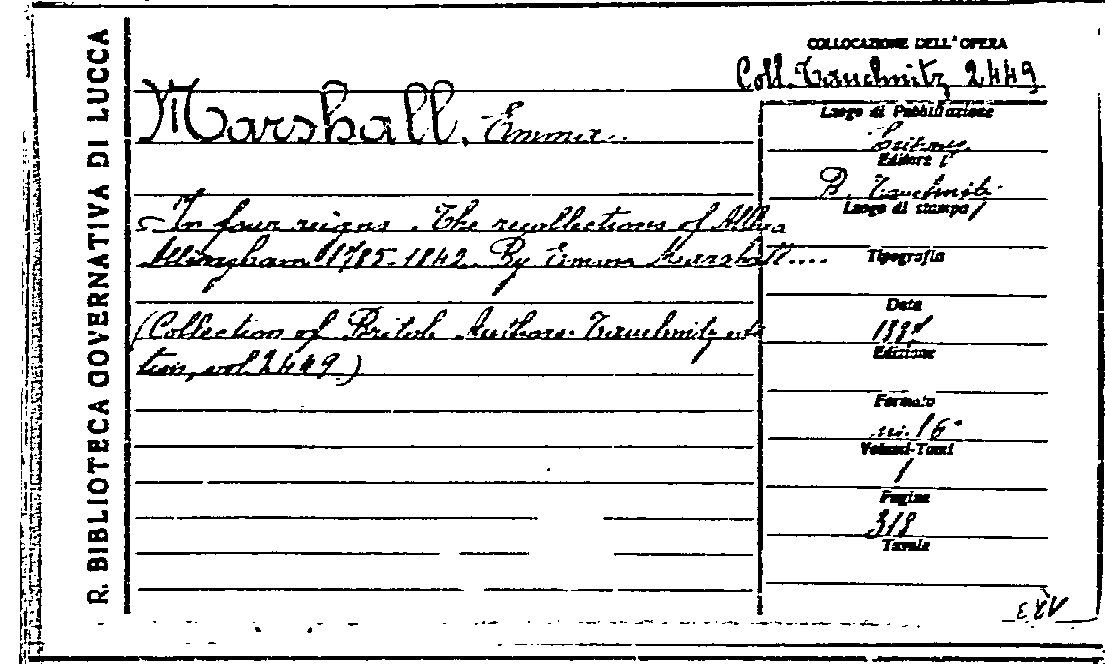 R. BIBLIOTECA GOVERNATIVA DI LUCCA
COLLOCAZIONE DELL'OPERA
Coll. Tauchnitz 2449
Marshall, Emma.
In four reigns. The recollections of Althea
Allingham 1785-1842. By Emma Marshall....
(Collection of British Authors. Tauchnitz edi
tion, vol. 2449.)
Luogo di Pubblicazione
Editore
B. Tauchnitz
Luogo di stampa
Tipografia
Data
Edizione
Formato
in 16°
Volumi-Tomi
1
Pagine
318
Tavole